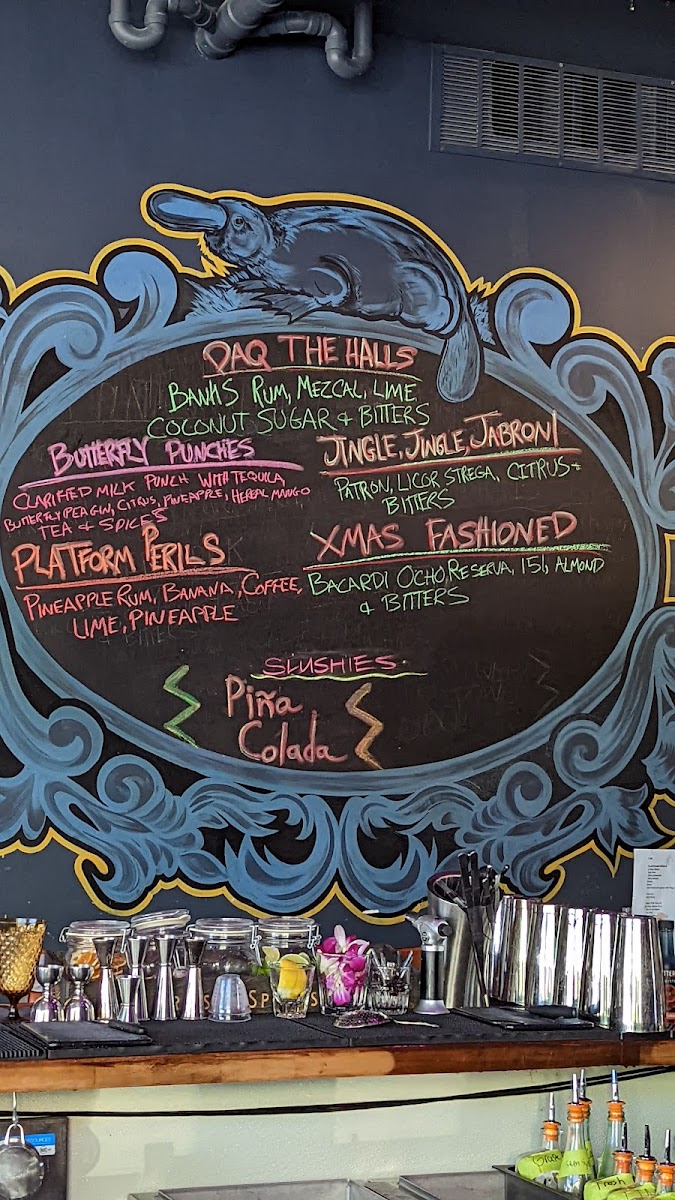 DAQ THE HALLS
BANKS RUM, MEZCAL, LIME,
COCONUT SUGAR & BITTERS
BUTTERFLY PUNCHES
CLARIFIED MILK PUNCH WITH TEQUILA,
BUTTERFLY PEA GIN, CITRUS, PINEAPPLE, HERBAL MANGO
TEA & SPICES
JINGLE, JINGLE, JABRONI
PATRON, LICOR STREGA, CITRUS +
BITTERS
PLATFORM PERILS
PINEAPPLE RUM, BANANA, COFFEE,
LIME, PINEAPPLE
XMAS FASHIONED
BACARDI OCHO RESERVA, 151, ALMOND
& BITTERS
SLUSHIES
Piña
Colada
Fresh